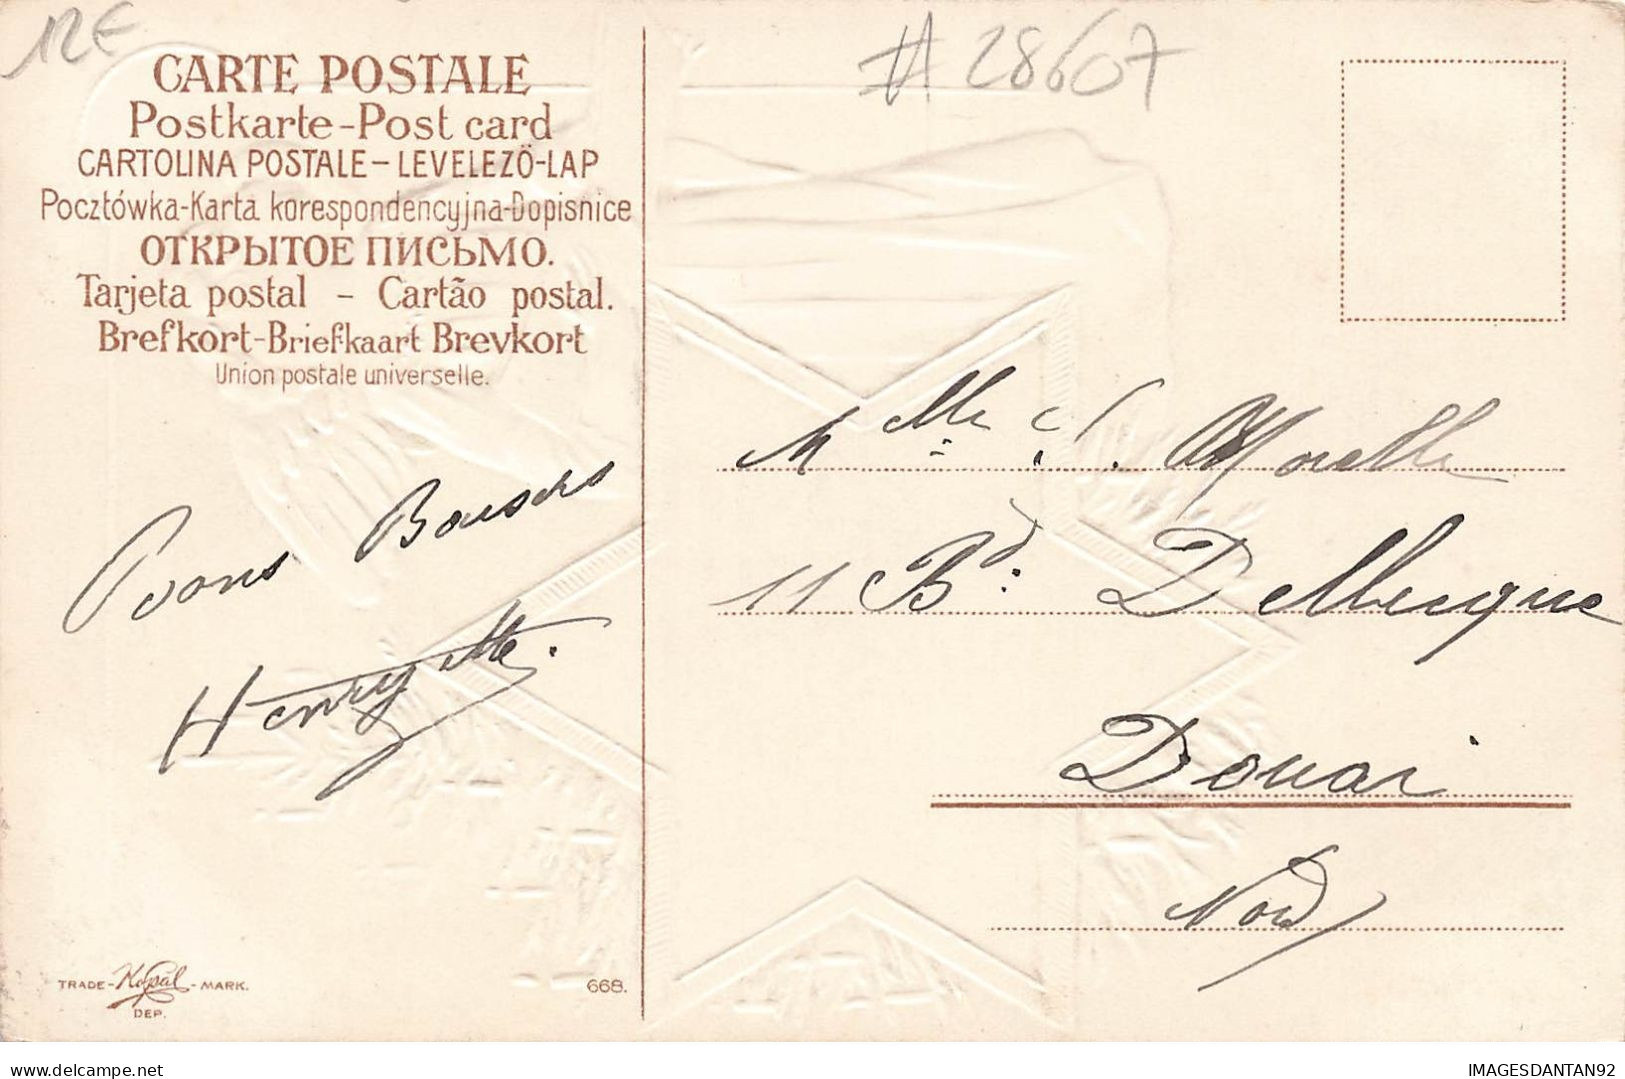 12€
#28607
CARTE POSTALE
Postkarte-Post card
CARTOLINA POSTALE-LEVELEZÖ-LAP
Pocztówka-Karta korespondencyjna-Dopisnice
ОТКРЫТОЕ ПИСЬМО.
Tarjeta postal - Cartão postal.
Brefkort-Briefkaart Brevkort
Union postale universelle.
Bons Baisers
Henryette.
Mlle S. Morelle
11 Bd. Delbecque
Douai
Nord
TRADE-Kopal-MARK.
DEP.
668.
delcampe.net
IMAGESDANTAN92